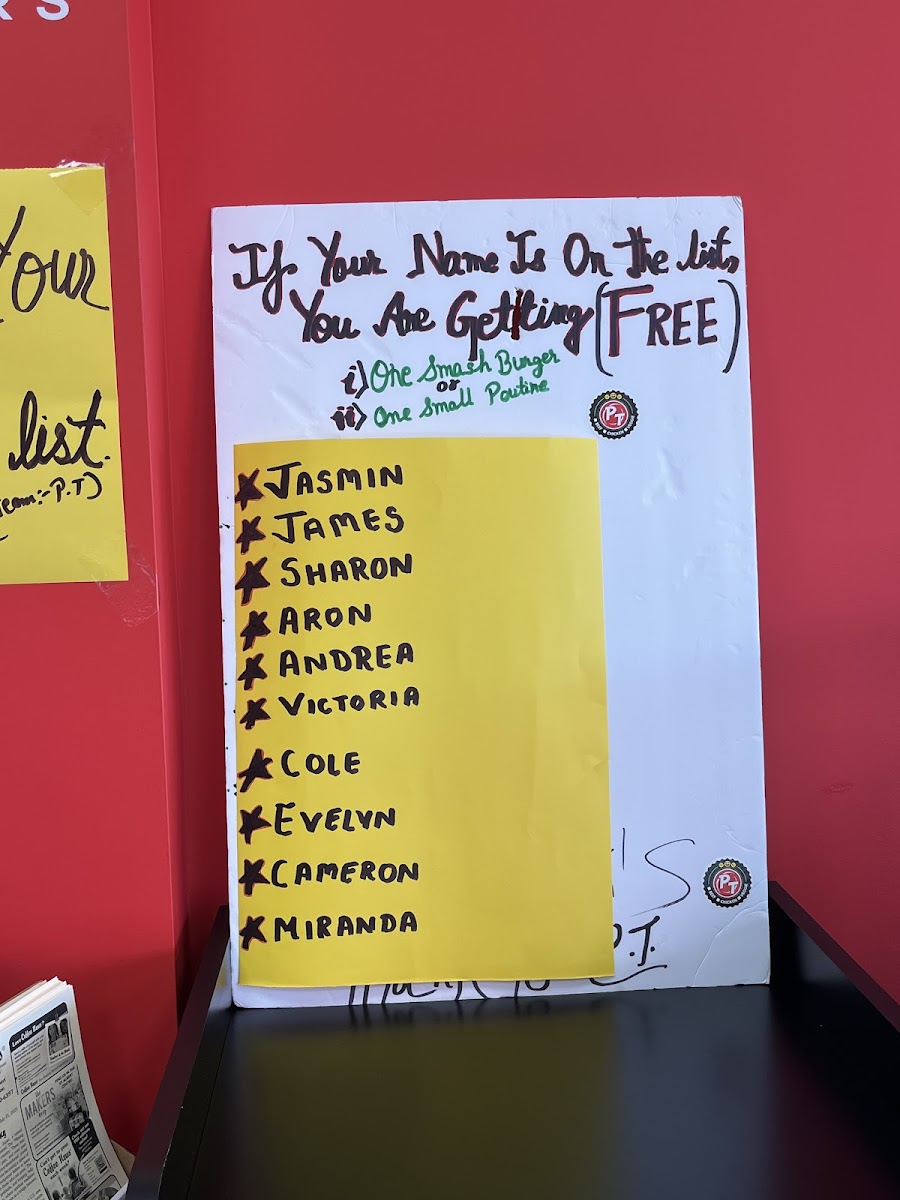 RS
Your
list.
Team:-P.T)
If Your Name Is On the list,
You Are Getting (FREE)
i) One Smash Burger
or
ii) One Small Poutine
PT
JASMIN
JAMES
SHARON
ARON
ANDREA
VICTORIA
COLE
EVELYN
CAMERON
MIRANDA
'S
PT
P.T.
Coffee Hour
The
MAKERS
Coffee Hour